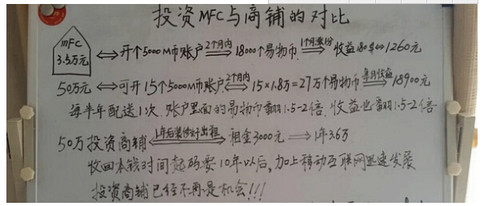 投资MFC与商铺的对比
MFC 3.5万元 ⟺ 开个5000M币账户 2个月内 18000个易物币 1个月 收益 1260元
50万元 ⟺ 可开15个5000M币账户 2个月内 15×1.8万=27万个易物币 每月收益 18900元
每半年配送1次 账户里面的易物币翻1.5-2倍 收益也翻1.5-2倍
50万投资商铺 1年后装修好出租 租金3000元 → 1年3.6万
收回本钱时间起码要10年以后,加上移动互联网迅速发展
投资商铺已经不再是机会!!!